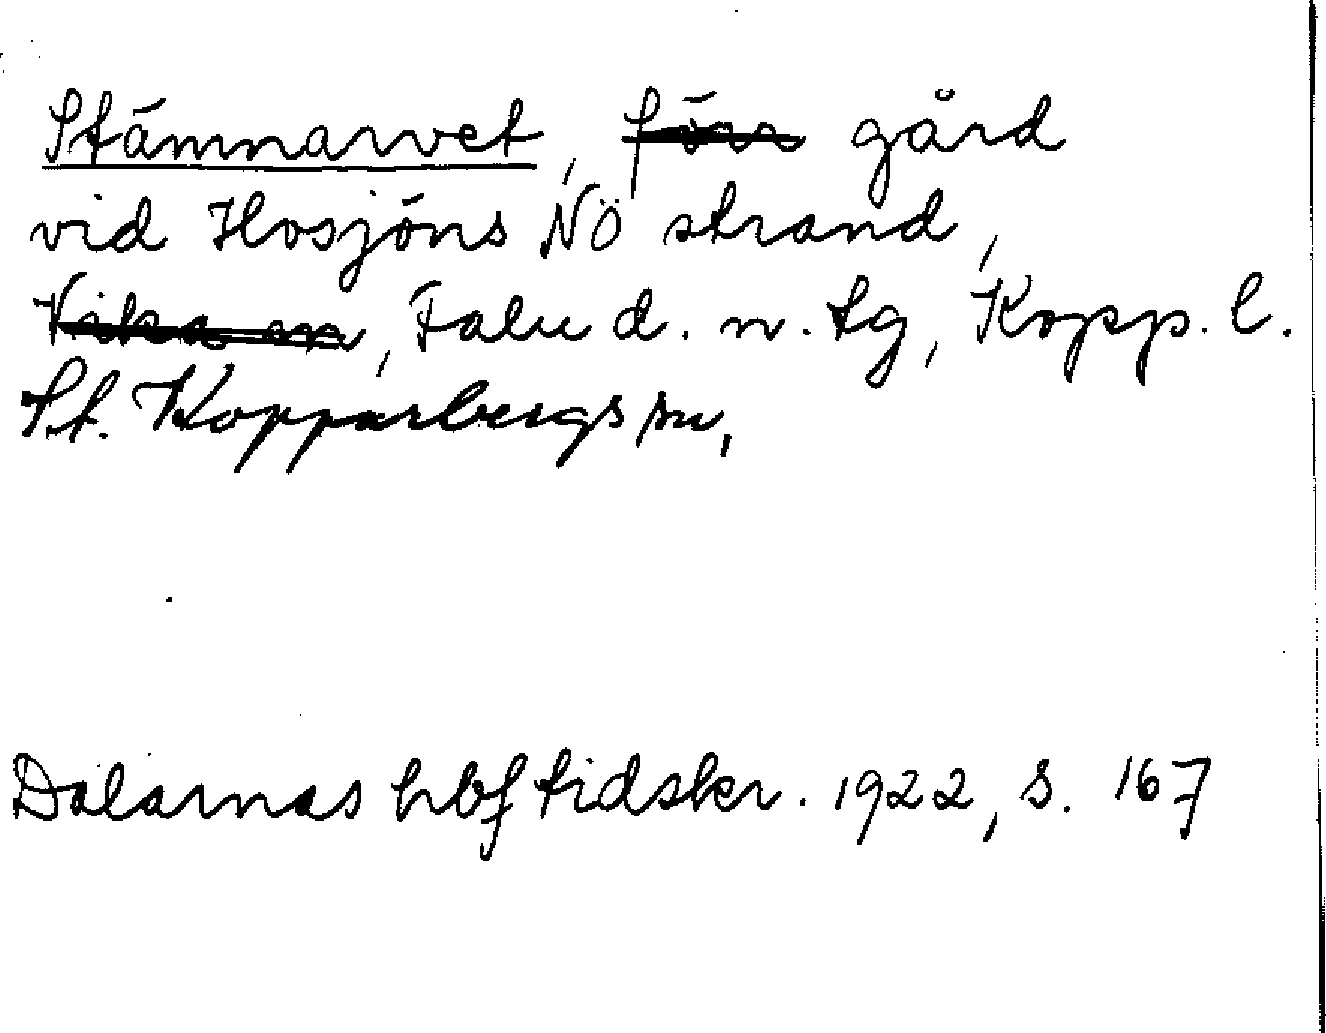 Stämnarvet, förr gård
vid Hosjöns NÖ strand,
Vika sn, Falu d. n. tg, Kopp. l.
St. Kopparbergs sn,
Dalarnas hbf tidskr. 1922, s. 167